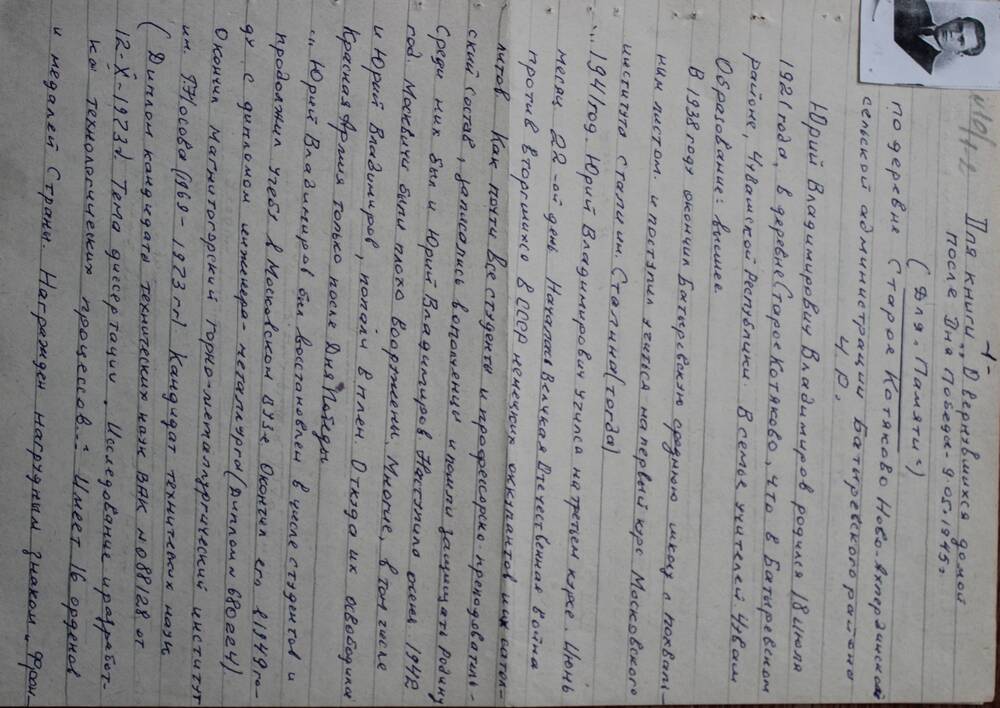 -1-
N10/1-2
Для книги „О вернувшихся домой
после Дня Победы - 9.05.1945г
(Для „Памяти“)
по деревне Старое Котяково Ново-Ахпердинской
сельской администрации Батыревского района
Ч.Р.
Юрий Владимирович Владимиров родился 18 июля
1921 года, в деревне Старое Котяково, что в Батыревском
районе, Чувашской Республики. В семье учителей. Чуваш
Образование: высшее.
В 1938 году окончил Батыревскую среднюю школу с похваль-
ным листом. и поступил учиться на первый курс Московского
института стали им. Сталина (тогда)
... 1941 год. Юрий Владимирович учился на третьем курсе. Июнь
месяц 22-ой день Началась Великая Отечественная война
против вторгшихся в СССР немецких оккупантов и их сател-
литов Как почти все студенты и профессорско-преподователь-
ский состав, записались в ополченцы и пошли защищать Родину
Среди них был и Юрий Владимиров. Наступила осень 1942
год. Москвичи были плохо вооружены. Многие, в том числе
и Юрий Владимиров, попали в плен. Откуда их освободила
Красная Армия только после Дня Победы
... Юрий Владимиров был восстановлен в числе студентов и
продолжил учебу в Московском ВУЗе. Окончил его в 1949 го-
ду с дипломом инженера-металлурга (Диплом № 680224).
Окончил Магнитогорский горно-металлургический институт
им. Г.Носова (1969-1973 гг) Кандидат технических наук
(Диплом кандидата технических наук ВАК № 088128 от
12-X-1973г. Тема диссертации „Исследование и разработ-
ка технологических процессов...“ Имеет 16 орденов
и медалей Страны. Награжден нагрудным знаком „Фрон-